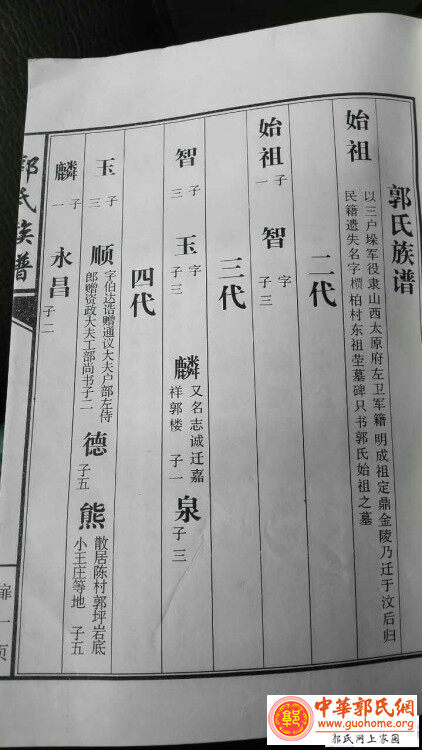 郭氏族谱
始祖 以三户垛军役隶山西太原府左卫军籍 明成祖定鼎金陵乃迁于汶后归
民籍遗失名字槚柏村东祖茔墓碑只书郭氏始祖之墓
二代
始祖 子一 智 字 子三
三代
智 子三 玉 字 子三 麟 又名志诚迁嘉祥郭楼 子一 泉 子三
四代
玉 子三 顺 字伯达诰赠通议大夫户部左侍郎赠资政大夫工部尚书子二 德 子五 熊 散居陈村郭坪岩底小王庄等地 子五
麟 子一 永昌 子二
郭氏族谱
扉一页
中華郭氏網
www.guohome.org
郭氏网上家园